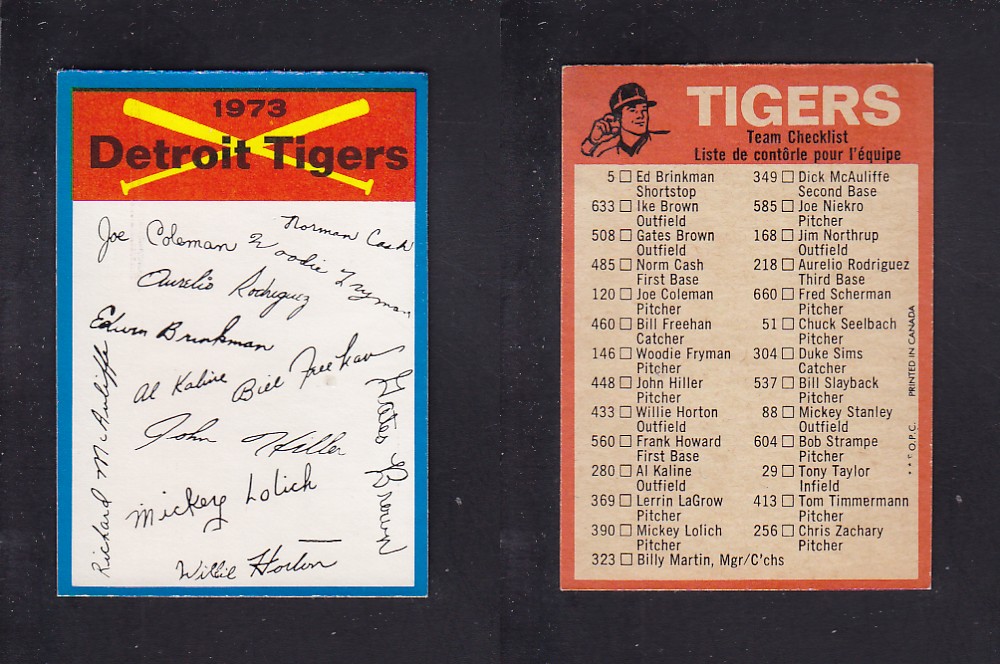 1973
Detroit Tigers
Joe Coleman
Norman Cash
Woodie Fryman
Aurelio Rodriguez
Edwin Brinkman
Al Kaline
Bill Freehan
Richard McAuliffe
Gates Brown
John Hiller
Mickey Lolich
Willie Horton
TIGERS
Team Checklist
Liste de contôrle pour l'équipe
5 Ed Brinkman
Shortstop
633 Ike Brown
Outfield
508 Gates Brown
Outfield
485 Norm Cash
First Base
120 Joe Coleman
Pitcher
460 Bill Freehan
Catcher
146 Woodie Fryman
Pitcher
448 John Hiller
Pitcher
433 Willie Horton
Outfield
560 Frank Howard
First Base
280 Al Kaline
Outfield
369 Lerrin LaGrow
Pitcher
390 Mickey Lolich
Pitcher
323 Billy Martin, Mgr/C'chs
349 Dick McAuliffe
Second Base
585 Joe Niekro
Pitcher
168 Jim Northrup
Outfield
218 Aurelio Rodriguez
Third Base
660 Fred Scherman
Pitcher
51 Chuck Seelbach
Pitcher
304 Duke Sims
Catcher
537 Bill Slayback
Pitcher
88 Mickey Stanley
Outfield
604 Bob Strampe
Pitcher
29 Tony Taylor
Infield
413 Tom Timmermann
Pitcher
256 Chris Zachary
Pitcher
* * © O.P.C. PRINTED IN CANADA